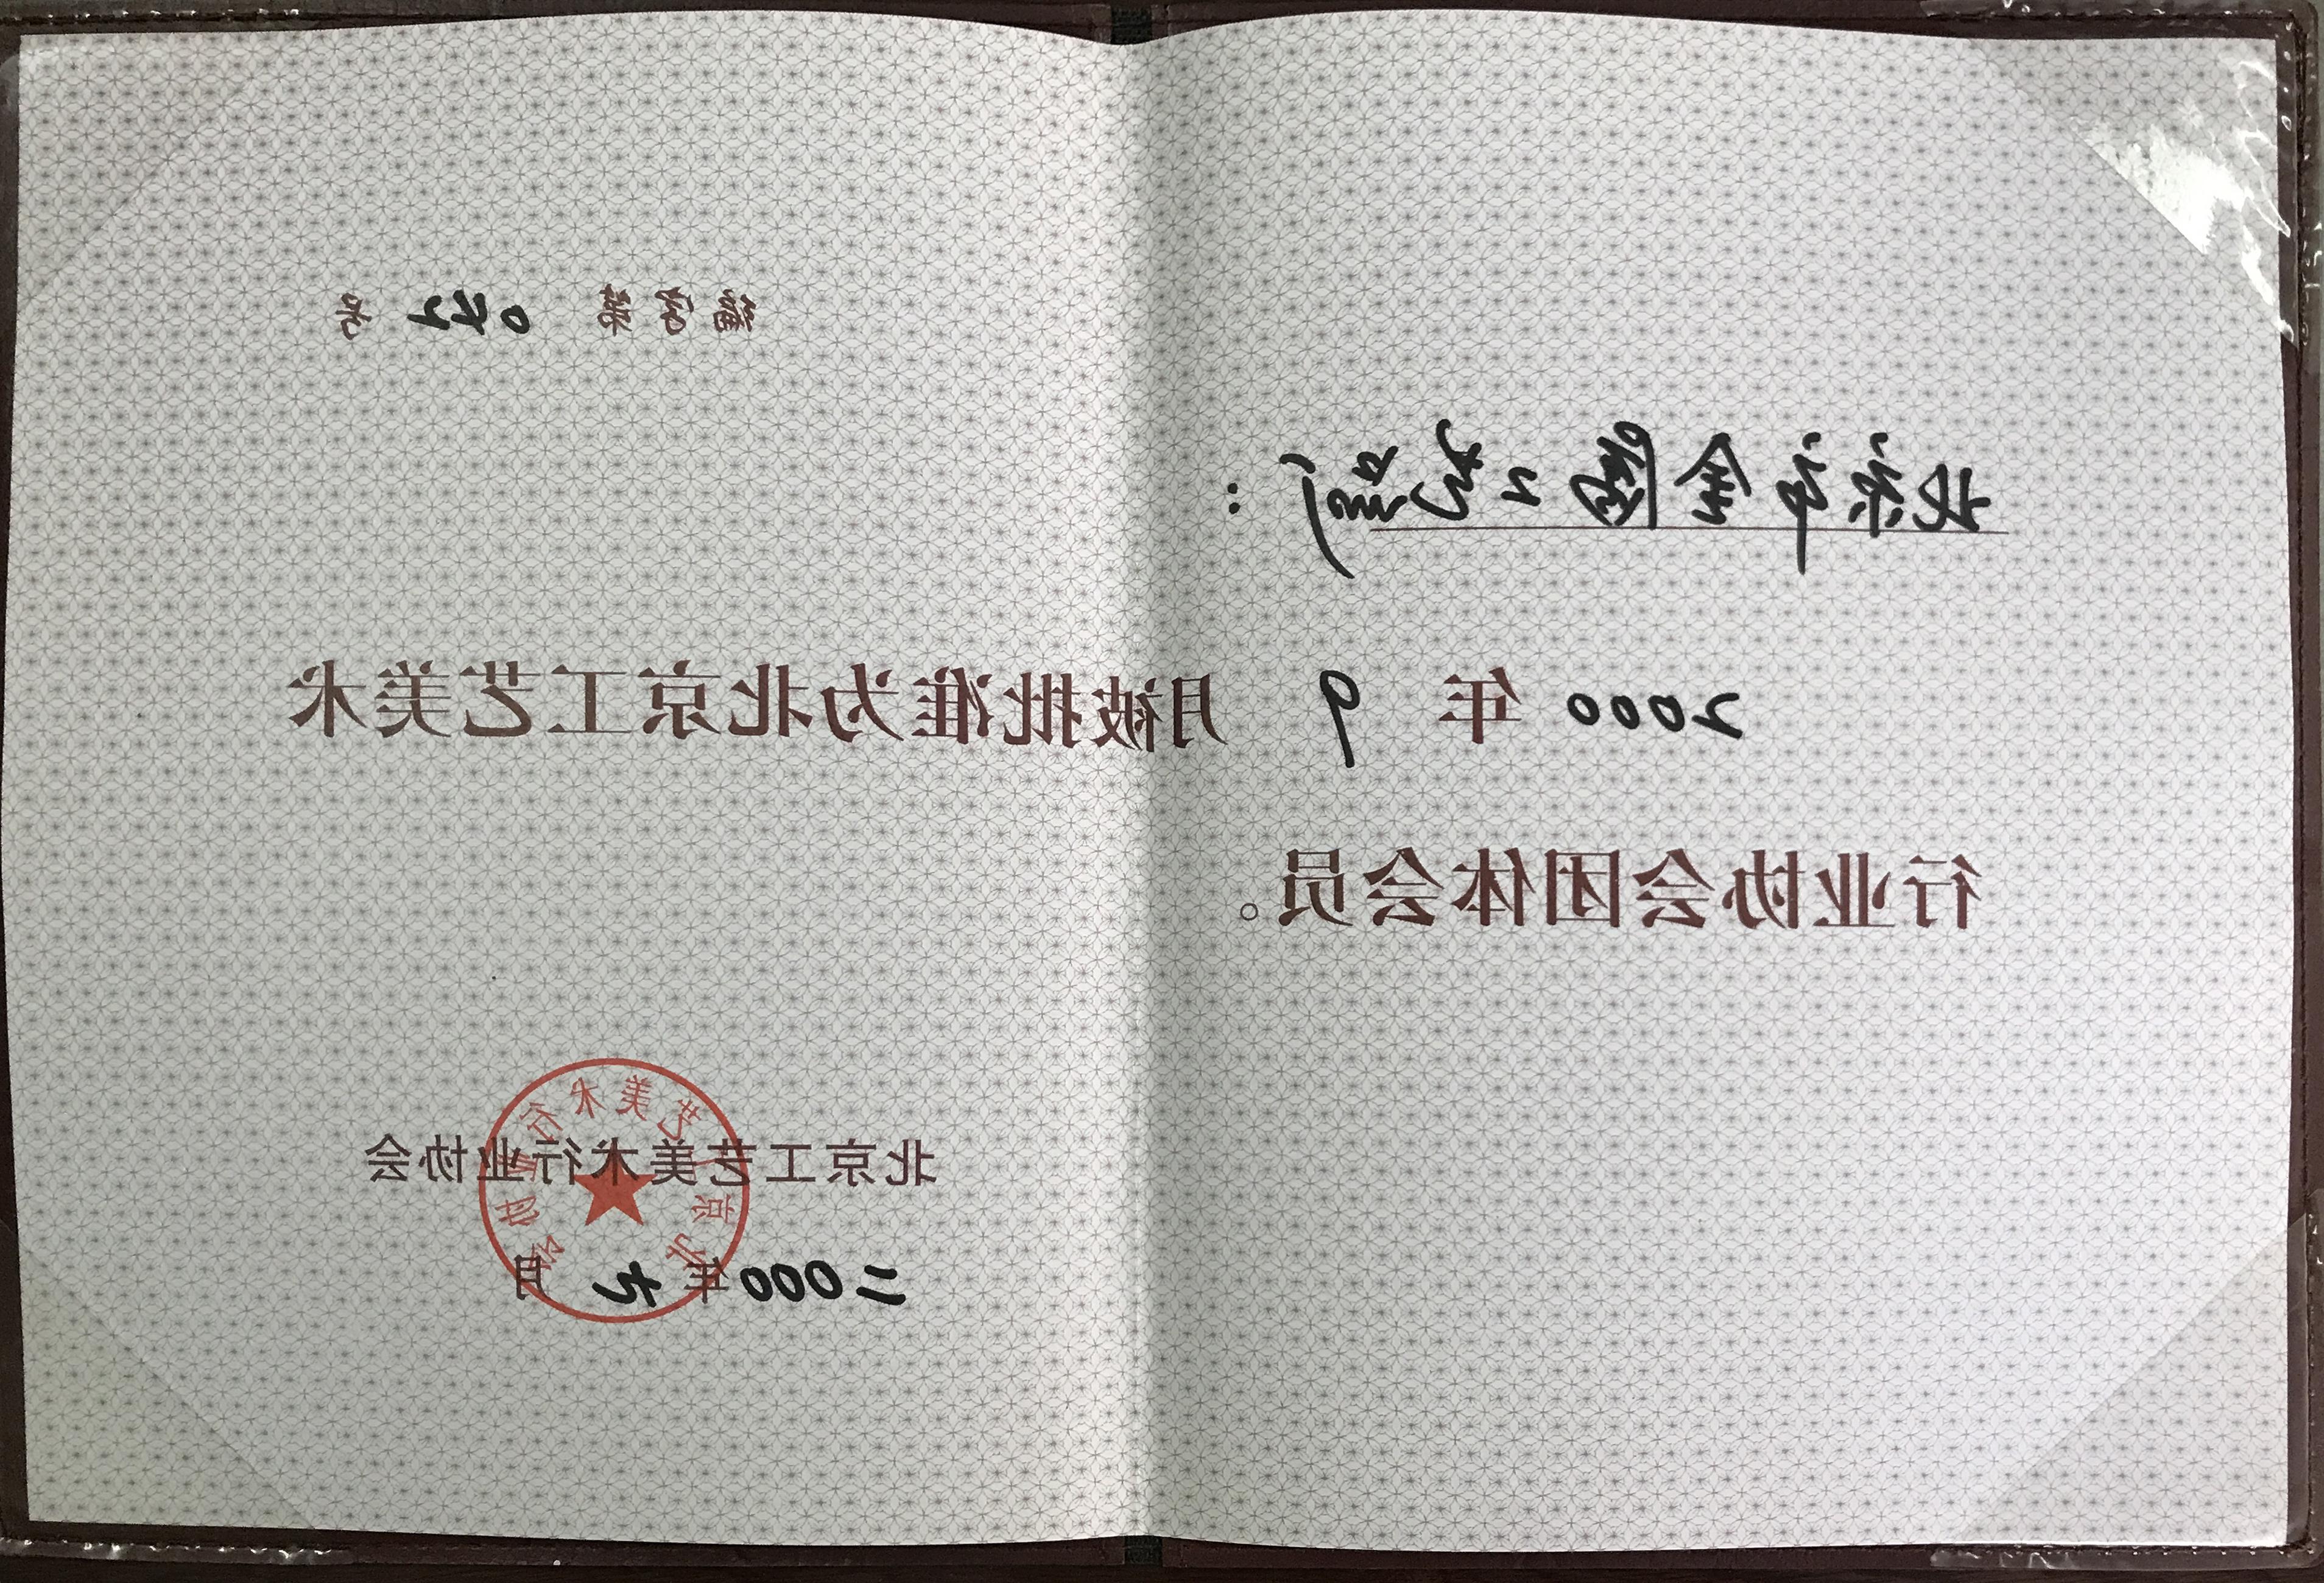 042 号
北京市金工艺厂：
2000 年 9 月被批准为北京工艺美术
行业协会团体会员。
北京工艺美术行业协会
二000年九月
北京工艺美术行业协会